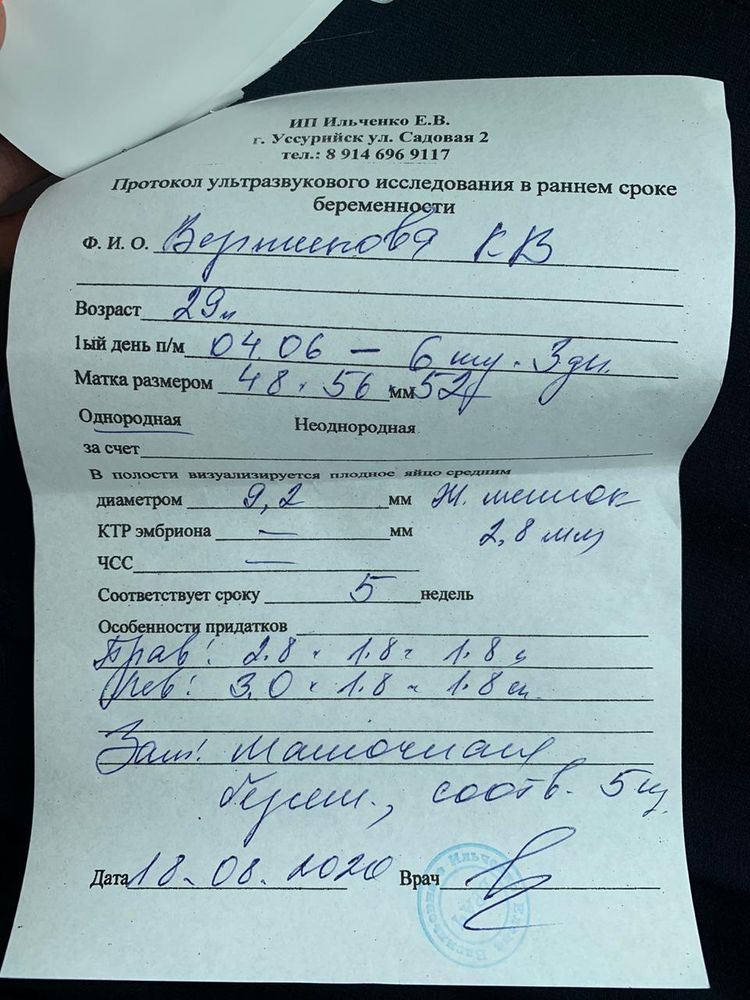 ИП Ильченко Е.В.
г. Уссурийск ул. Садовая 2
тел.: 8 914 696 9117
Протокол ультразвукового исследования в раннем сроке
беременности
Ф. И. О. К В
Возраст 29
1ый день п/м 04.06 — 6 3 дн.
Матка размером 48 × 56 мм 52
Однородная Неоднородная
за счет
В полости визуализируется плодное яйцо средним
диаметром 9,2 мм Ж. мешок
2,8 мм
КТР эмбриона — мм
ЧСС —
Соответствует сроку 5 недель
Особенности придатков
Прав: 2.8 × 1.8 × 1.8
Лев: 3.0 × 1.8 × 1.8 см
Зак: Маточная
берем., соотв. 5 н
Дата 18.08.2020 Врач